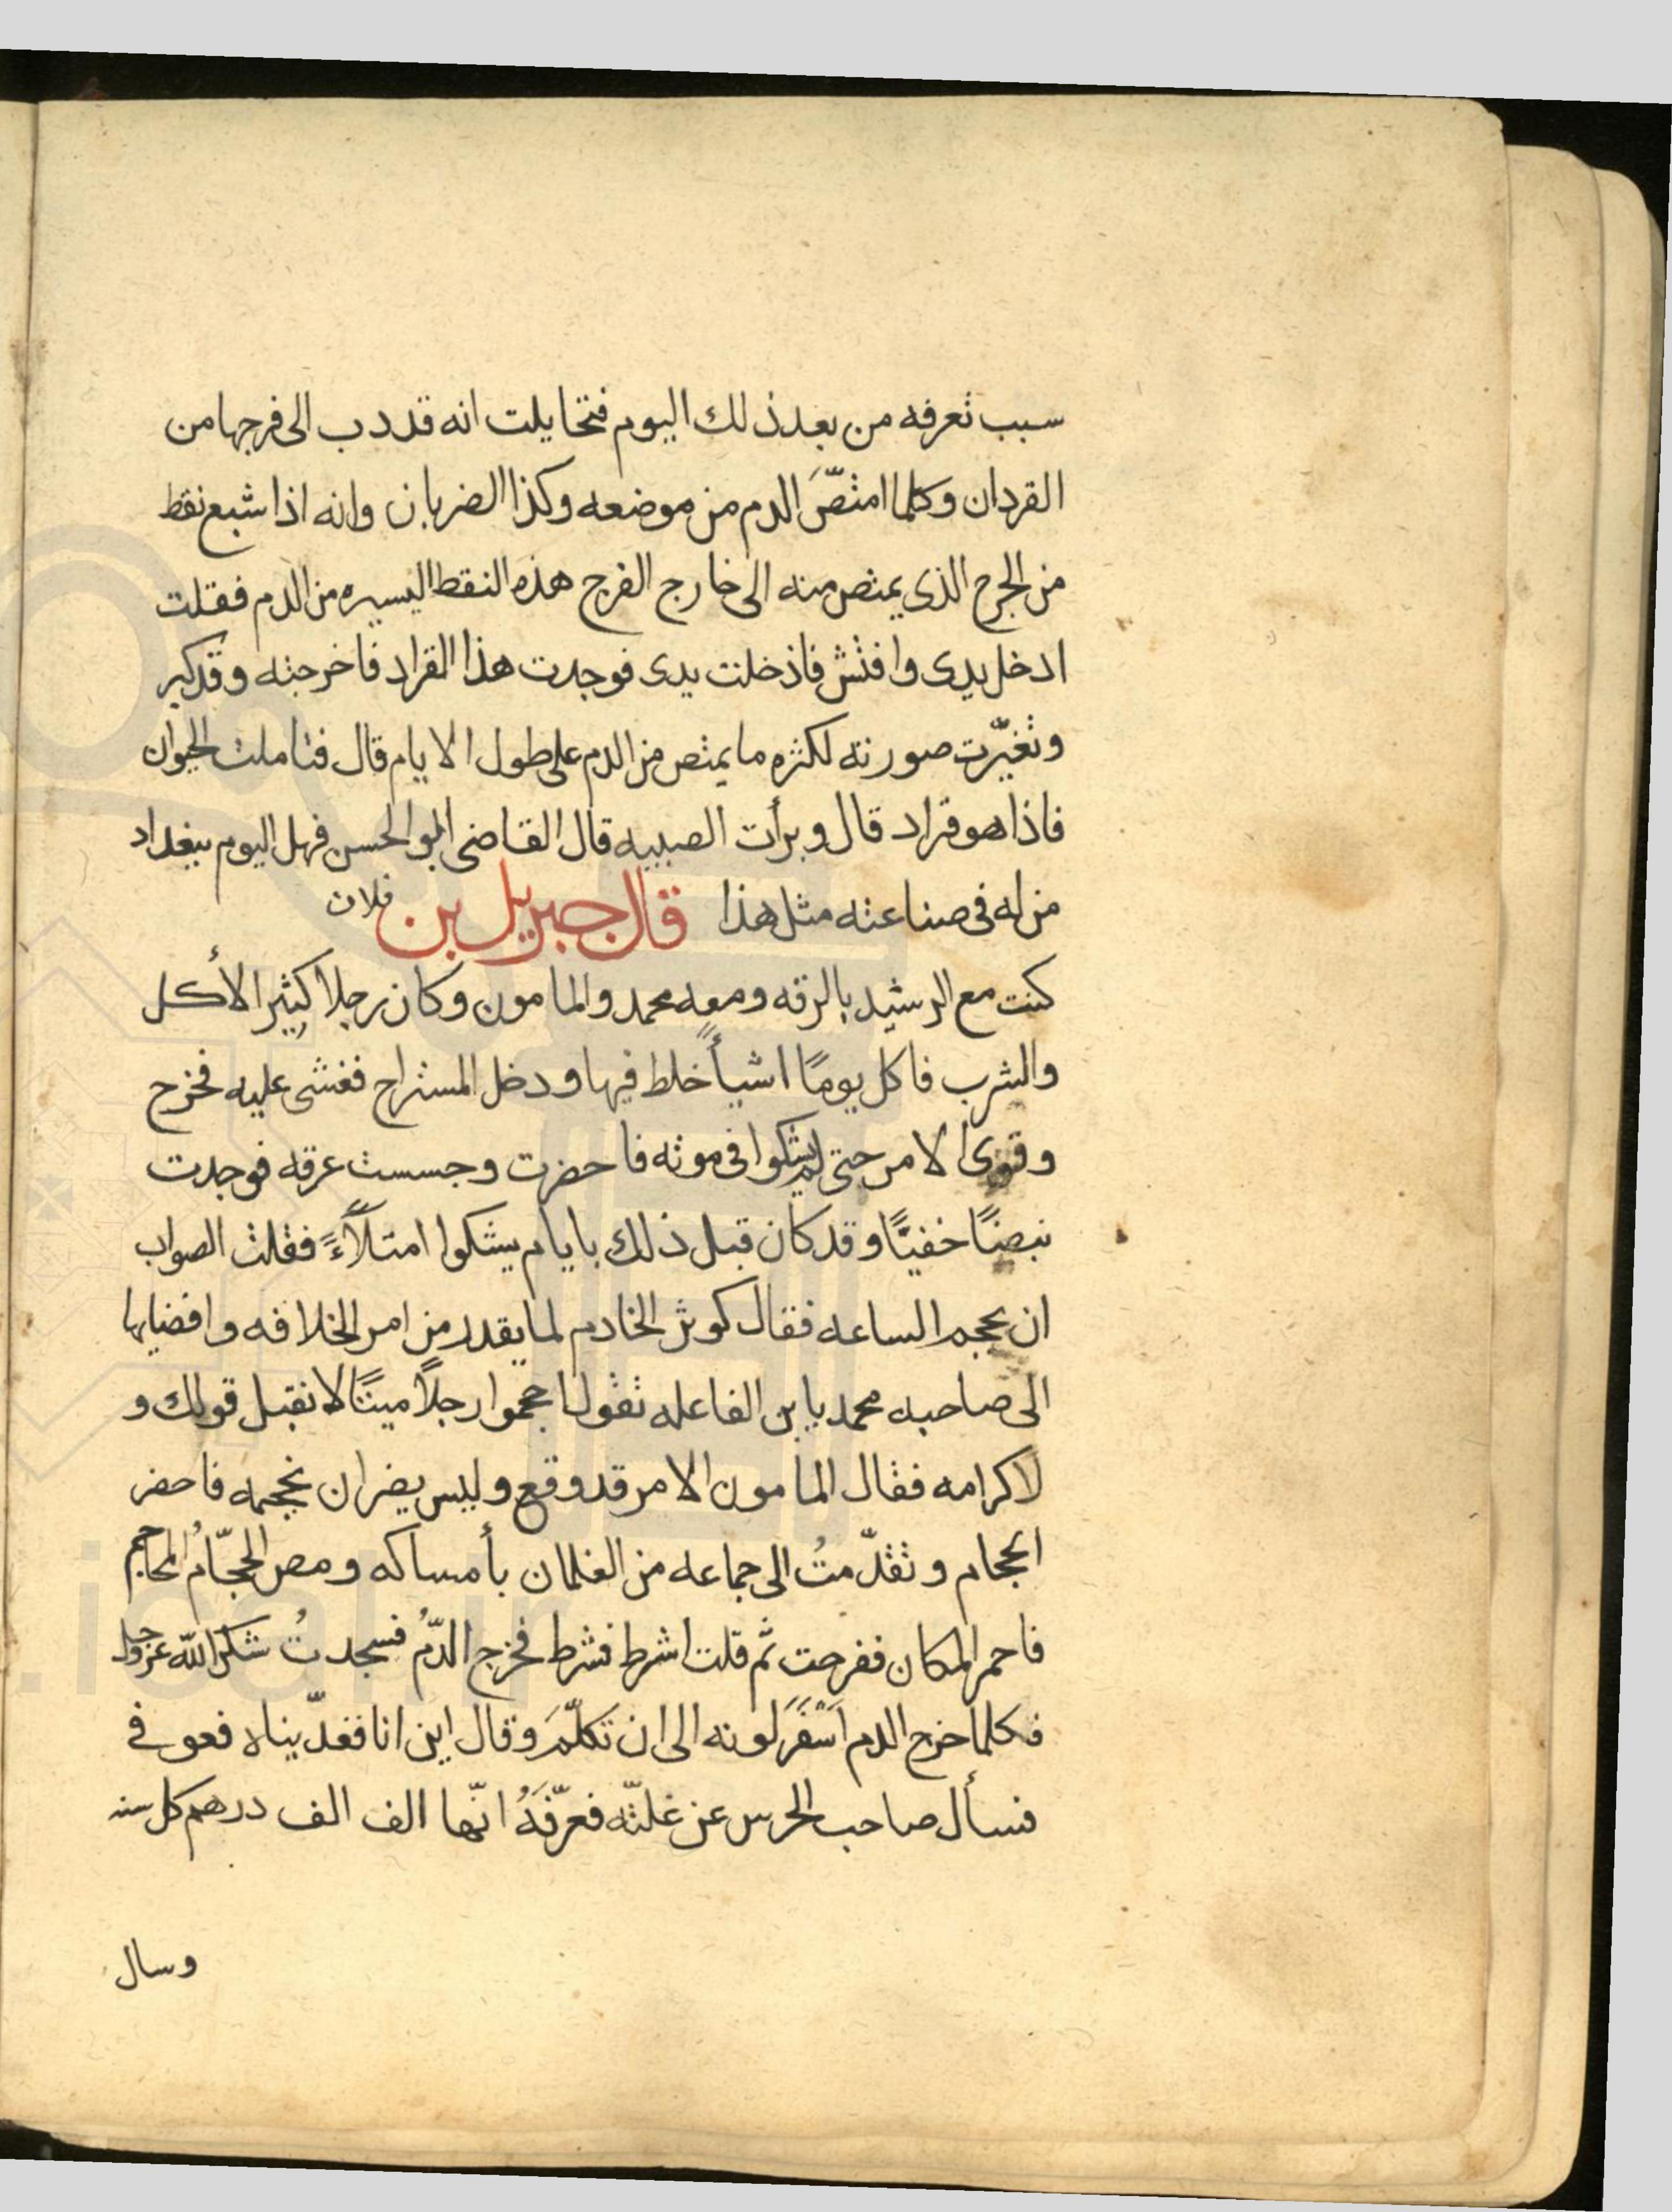 سبب تعرفه من بعد ذلك اليوم فتخايلت انه قد دب الى فرجها من
القردان وكلما امتصَّ الدم من موضعه وكذا الضربان وانه اذا شبع نقط
من الجرح الذى يمتص منه الى خارج الفرج هذه النقط اليسيره من الدم فقلت
ادخل يدى وافتش فاذخلت يدى فوجدت هذا القراد فاخرجته وقد كبر
وتغيّرت صورته لكثره ما يمتص من الدم على طول الايام قال فتاملت الحيوان
فاذا هو قراد قال وبرأت الصبيه قال القاضى ابو الحسن فهل اليوم ببغداد
من له فى صناعته مثل هذا قال جبريل بن فلان
كنت مع الرشيد بالرقه ومعه محمد والمامون وكان رجلا كثير الأكل
والشرب فاكل يومًا اشيأً خلط فيها ودخل المستراح فغشى عليه فخرج
وقوى الامر حتى لم يشكوا فى موته فاحضرت وجسست عرقه فوجدت
نبضًا خفيًّا وقد كان قبل ذلك بايام يشكوا امتلاًءً فقلت الصواب
ان يحجم الساعه فقال كوثر الخادم لما يقدر من امر الخلافه وافضايها
الى صاحبه محمد يا بن الفاعله تقول احجموا رجلاً ميتًا لا نقبل قولك و
لا كرامه فقال المامون الامر قد وقع وليس يضر ان نحجمه فاحضر
الحجام وتقدّمتُ الى جماعه من الغلمان بأمساكه ومص الحجّامُ المحاجم
فاحمر المكان ففرحت ثم قلت اشرط فشرط فخرج الدّمُ فسجدتُ شكرًا لله عز وجل
فكلما خرج الدم اَسْفَرَ لونه الى ان تكلّمَ وقال اين انا فغدّيناه فعوفى
فسأل صاحب الحرس عن غلتّه فعرّفَهُ انّها الف الف درهم كل سنه
وسال